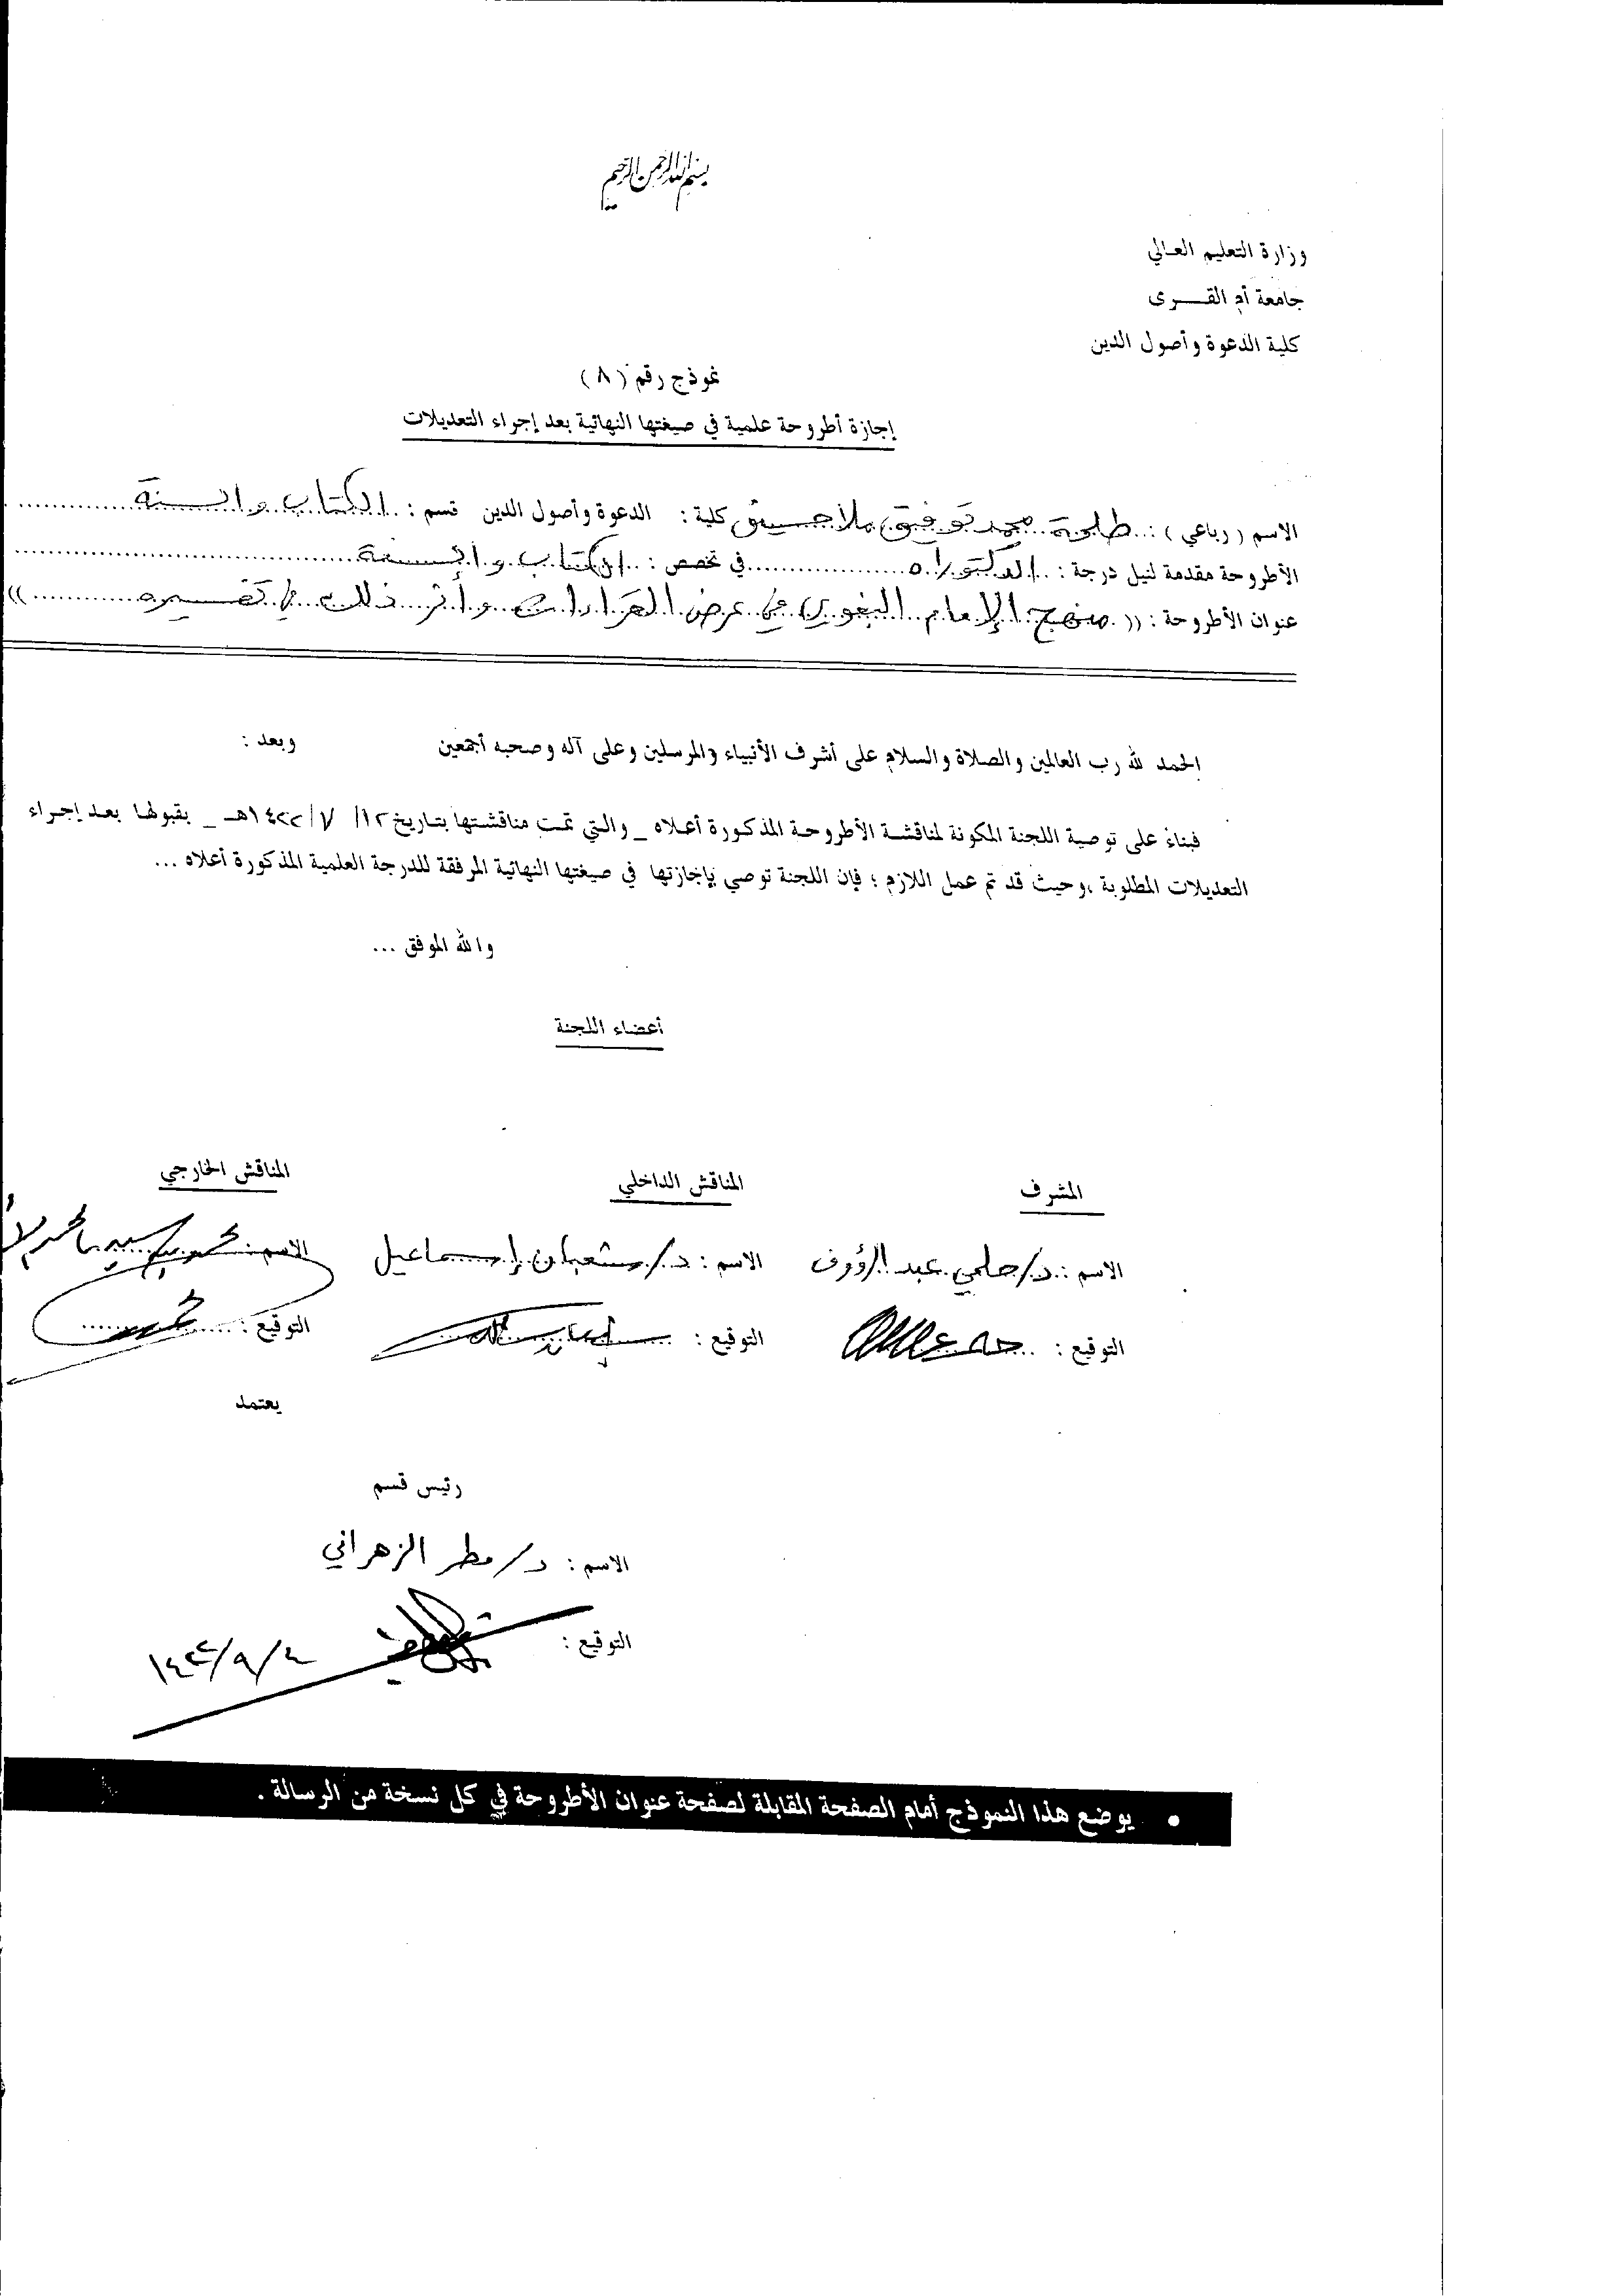 بسم الله الرحمن الرحيم
وزارة التعليم العالي
جامعة أم القـــرى
كلية الدعوة وأصول الدين
نموذج رقم ( ٨ )
إجازة أطروحة علمية في صيغتها النهائية بعد إجراء التعديلات
الاسم ( رباعي ) : طلحة محمد توفيق ملا حسين كلية : الدعوة وأصول الدين قسم : الكتاب والسنة
الأطروحة مقدمة لنيل درجة : الدكتوراه في تخصص : الكتاب والسنة
عنوان الأطروحة : (( منهج الإمام البغوي في عرض القراءات وأثر ذلك في تفسيره ))
الحمد لله رب العالمين والصلاة والسلام على أشرف الأنبياء والمرسلين وعلى آله وصحبه أجمعين وبعد :
فبناءً على توصية اللجنة المكونة لمناقشة الأطروحة المذكورة أعلاه _ والتي تمت مناقشتها بتاريخ ١٢/ ٧/ ١٤٢٢هـ _ بقبولها بعد إجراء
التعديلات المطلوبة ،وحيث قد تم عمل اللازم ؛ فإن اللجنة توصي بإجازتها في صيغتها النهائية المرفقة للدرجة العلمية المذكورة أعلاه ...
والله الموفق ...
أعضاء اللجنة
المشرف المناقش الداخلي المناقش الخارجي
الاسم : د/ حلمي عبد الرؤوف الاسم : د/ شعبان إسماعيل الاسم : محمد
التوقيع : التوقيع : التوقيع :
يعتمد
رئيس قسم
الاسم : د/ مطر الزهراني
التوقيع : ١٤٢٢/٩/٤
• يوضع هذا النموذج أمام الصفحة المقابلة لصفحة عنوان الأطروحة في كل نسخة من الرسالة .